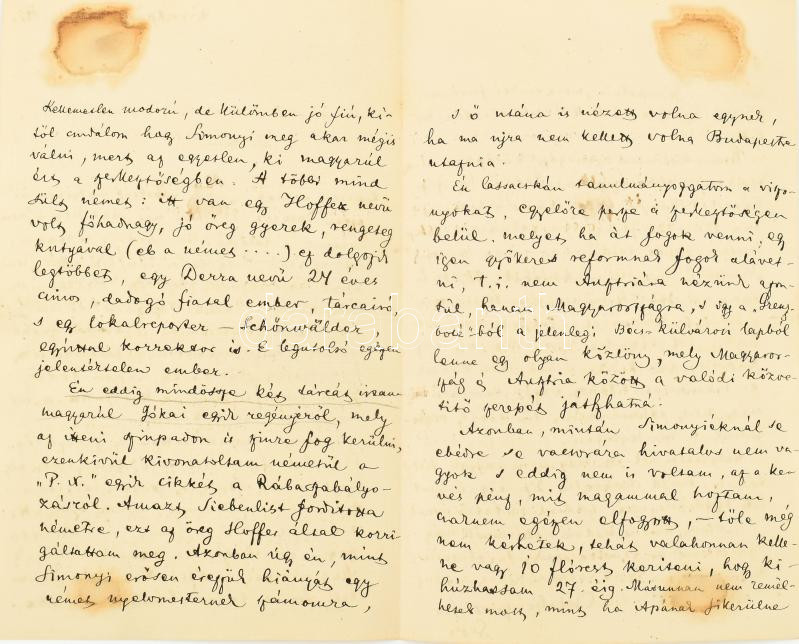 Kellemetlen modorú, de külömben jó fiú, ki-
től csudálom hogy Simonyi meg akar mégis
válni, mert az egyetlen, ki magyarúl
ért a szerkesztőségben. A többi mind
sült német: itt van egy Hoffer nevű
volt főhadnagy, jó öreg gyerek, rengeteg
kutyával (eb a német ....) ez dolgozik
legtöbbet, egy Derra nevű 24 éves
dadogó fiatal ember, tárcaíró,
s egy lokalreporter – Schönwälder,
egyúttal korrektor is. E legutolsó egészen
jelentéktelen ember.
Én eddig mindössze két tárcát irtam
magyarúl Jókai egyik regényéről, mely
az itteni szinpadon is szinre fog kerülni,
ezenkivűl kivonatoltam németűl a
„P. N." egyik cikkét a Rábaszabályo-
zásról. Amazt Siebenlist fordította
németre, ezt az öreg Hoffer által korri-
gáltattam meg. Azonban úgy én, mint
Simonyi erősen érezzük hiányát egy
német nyelvmesternek számomra,
s ő utána is nézett volna egynek,
ha ma ujra nem kellett volna Budapestre
utaznia.
Én lassacskán tanulmányozgatom a viszo-
nyokat, egyelőre persze a szerkesztőségen
belül, melyet ha át fogok venni, egy
igen gyökeres reformnak fogok alávet-
ni, t. i. nem Ausztriára nézünk azon-
túl, hanem Magyarországra, s igy a „Grenz-
bote"-ból a jelenlegi Bécs-külvárosi lapból
lenne egy olyan közlöny, mely Magyaror-
szág és Ausztria között a valódi közve-
titő szerepét játszhatná.
Azonban, miután Simonyiéknál se
ebédre se vacsorára hivatalos nem va-
gyok s eddig nem is voltam, az a ke-
vés pénz, mit magammal hoztam,
csaknem egészen elfogyott, – tőle még
nem kérhetek, tehát valahonnan kelle-
ne vagy 10 flórest keriteni, hogy ki-
húzhassam 27. éig. Másunnan nem remél-
hetek most, mint ha Apának sikerülne